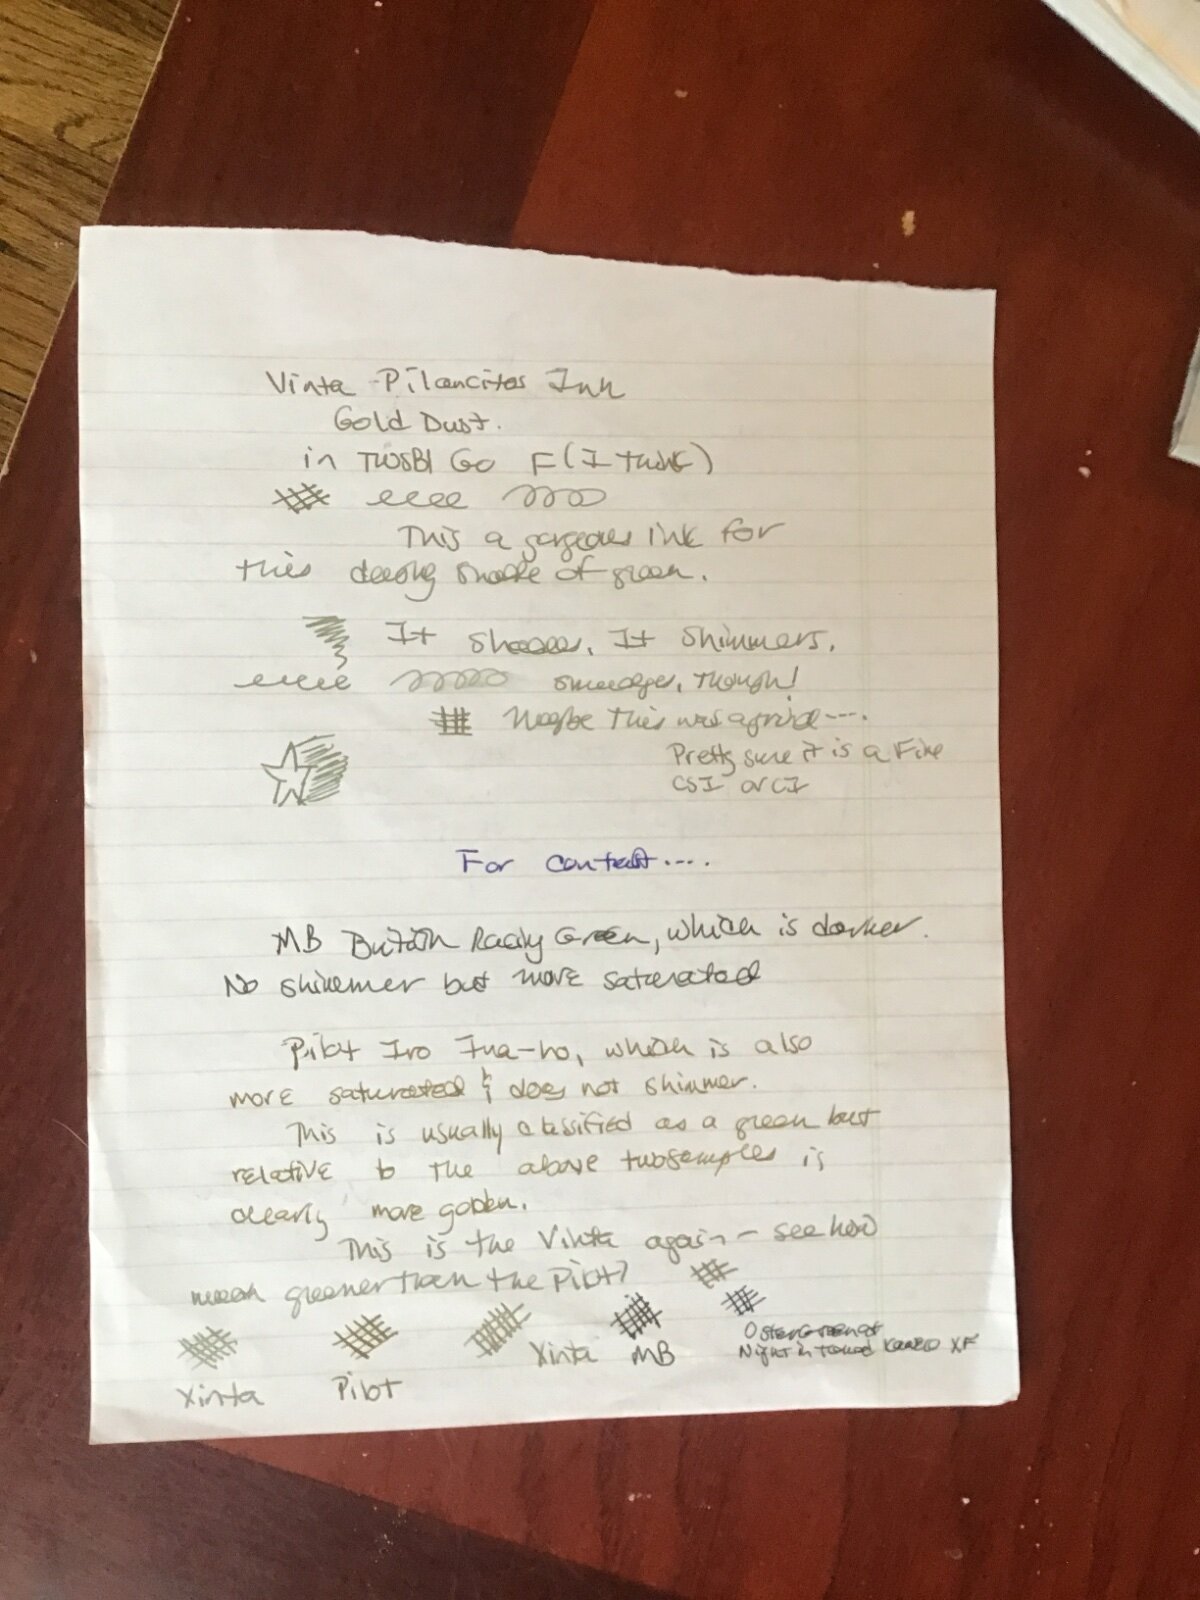 Vinta Piloncitos Ink
Gold Dust.
in TWSBI Go F (I think)
This a gorgeous ink for
this dusky shade of green.
It sheens. It shimmers.
smudges, though!
Maybe this was a grind----.
Pretty sure it is a Fine
CSI or CI
For contrast....
MB British Racing Green, which is darker.
No shimmer but more saturated
Pilot Iro Ina-ho, which is also
more saturated & does not shimmer.
This is usually classified as a green but
relative to the above two samples is
clearly more golden.
This is the Vinta again - see how
much greener than the Pilot?
Vinta Pilot Vinta MB
Night in
XF